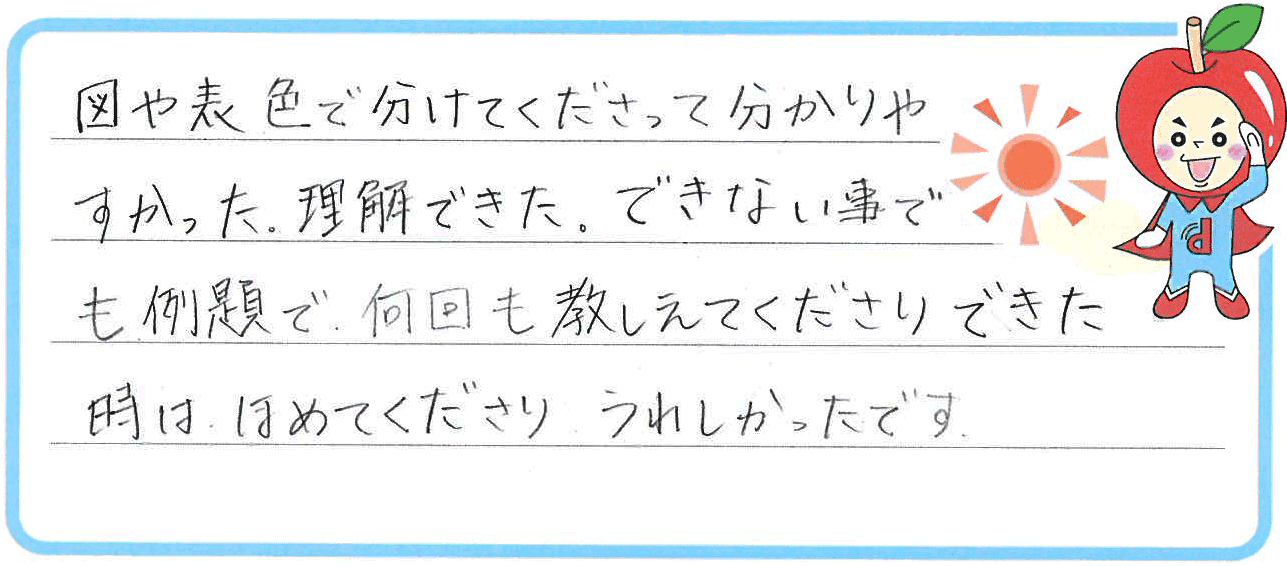 図や表色で分けてくださって分かりや
すかった。理解できた。できない事で
も例題で、何回も教しえてくださりできた
時は、ほめてくださり、うれしかったです。